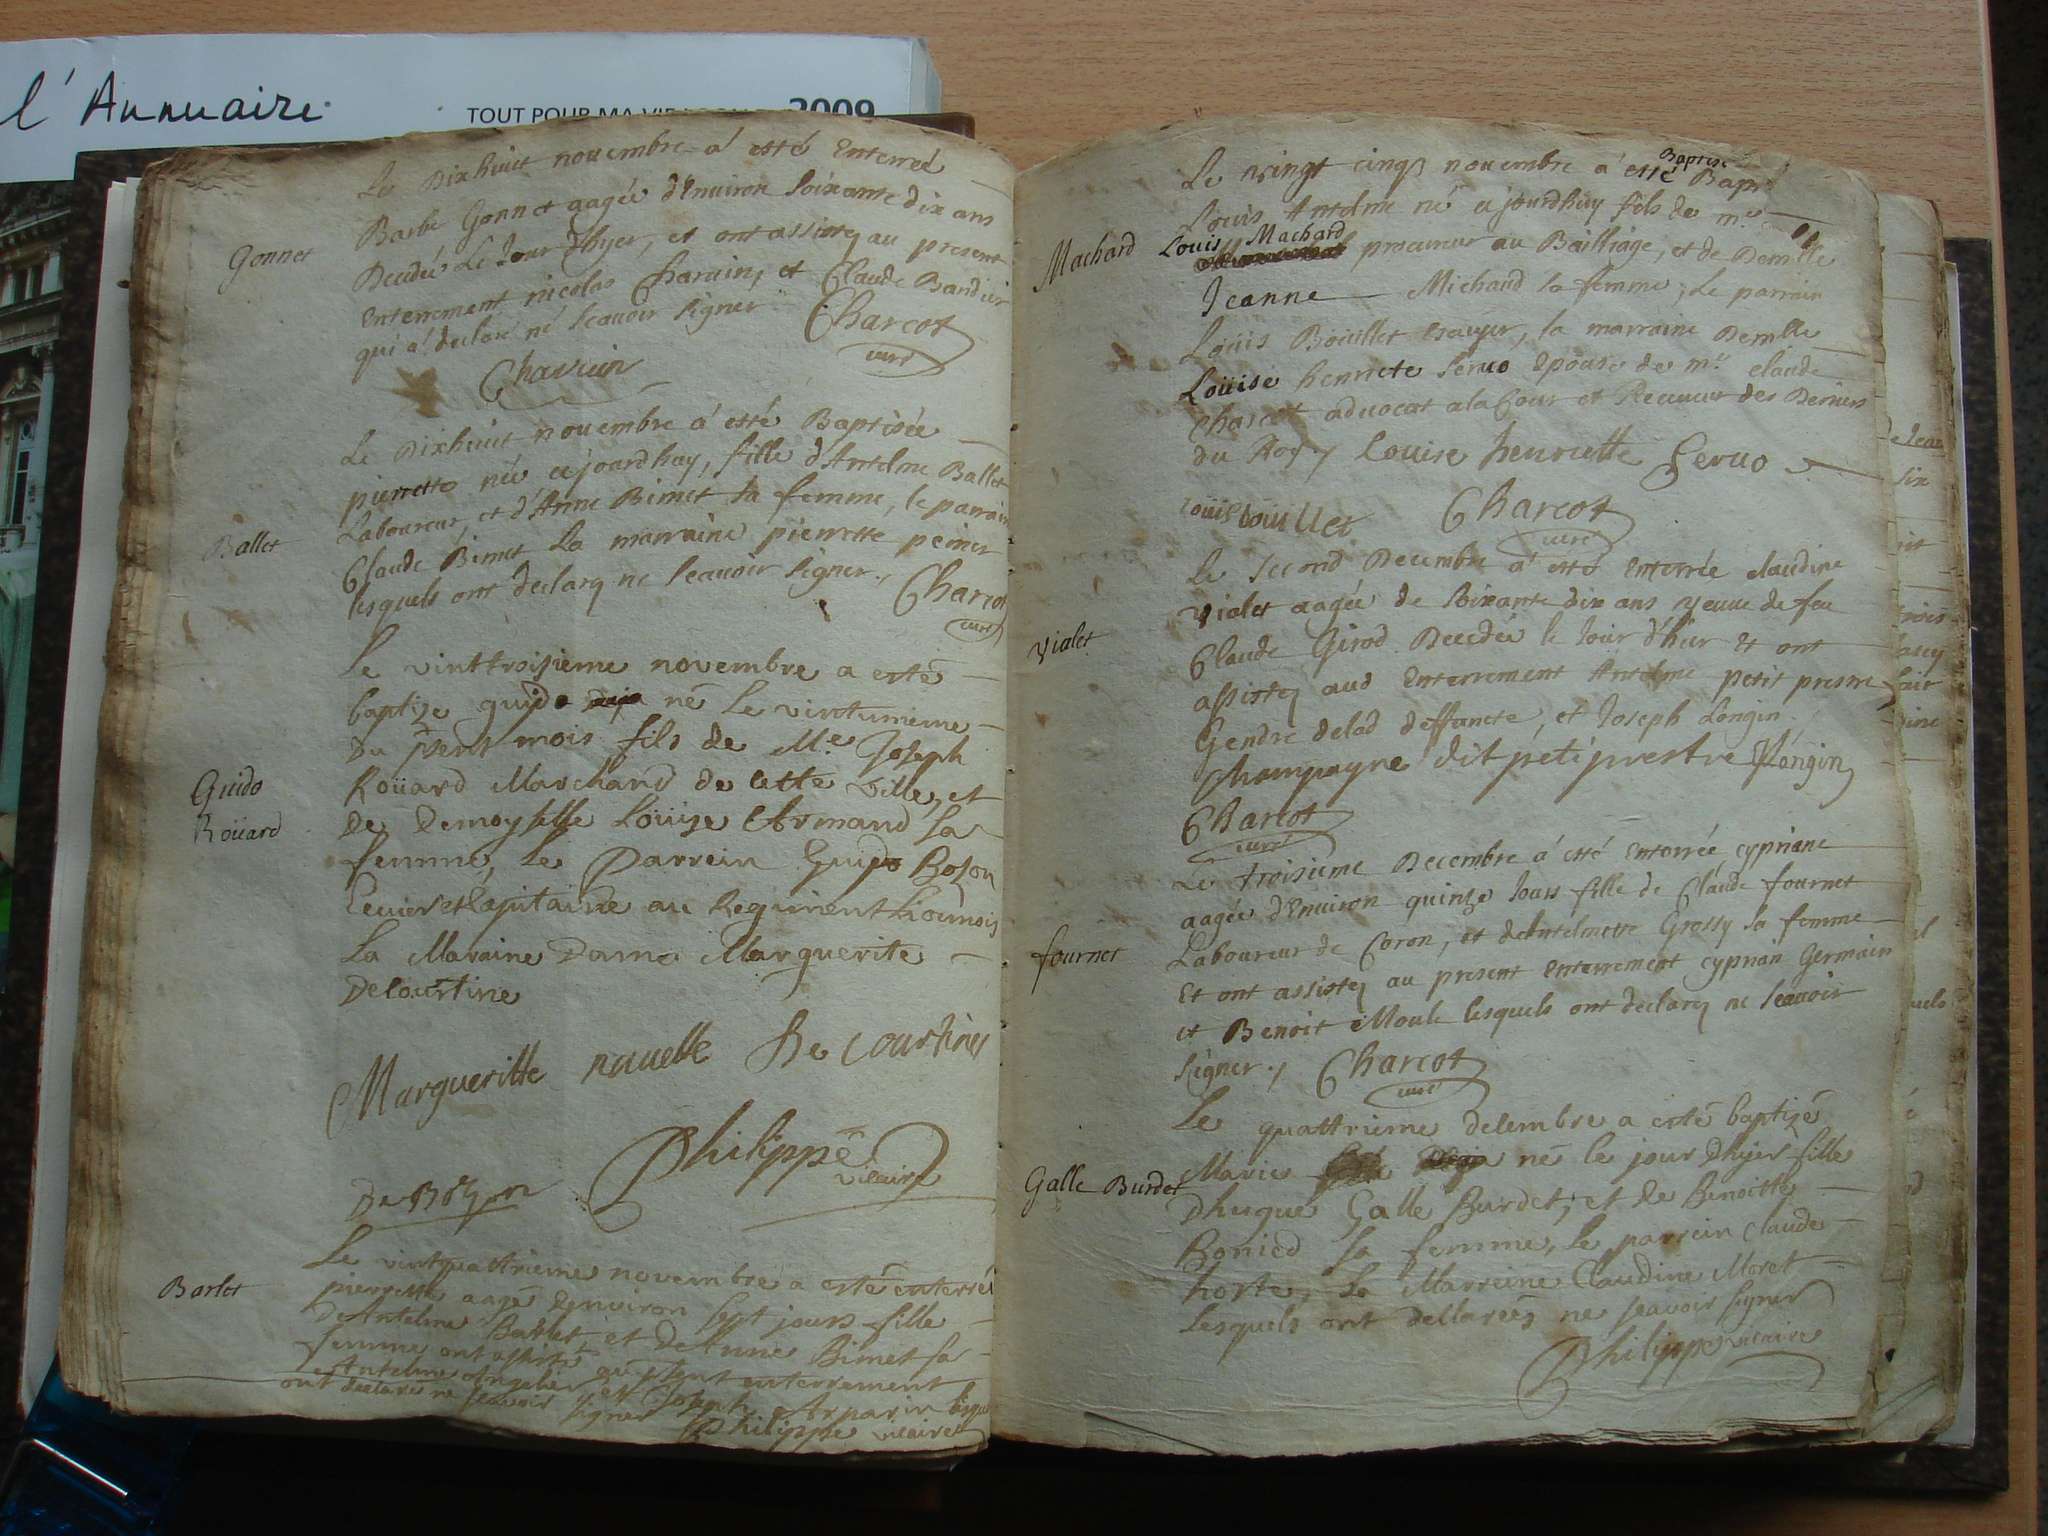 l'Annuaire
TOUT POUR MA VIE
2009
Le Dixhuict novembre a esté Enterreé
Barbe Gonnet aagée d'Environ Soixante dix ans
Gonnet
Decedée Le Jour d'hyer, et ont assistez au present
Enterrement nicolas Charvin, et Claude Bandier
qui a declaré né Scavoir Signer Charcot
curé
Charvin
Le Dixhuict novembre á esté Baptisée
pierrette née cejourdhuy, fille d'Antelme Ballet
Laboureur, et d'Anne Bimet sa femme, le parrain
Ballet
Claude Bimet La marraine pierrette
lesquels ont declarez ne Scavoir Signer., Charcot
curé
Le vinttroisieme novembre a esté
baptize guido né Le vintunieme
Du pent mois fils de Me Joseph
Guido
Roüard
Roüard Marchand de cette ville, et
De Demoyselle Loüize Armand sa
femme, Le Parrein Guido Bozon
Ecuier et Capitaine au Regiment Lionnois
La Maraine Dame Marguerite
Decourtine
Margueritte De Courtines
Philippe
vicaire
De Bozon
Le vintquattrieme novembre a esté enterreé
Barlet
pierrette aageé Denviron Sept jours fille
De Antelme Barlet, et de Anne Bimet sa
femme ont assisté au pent enterrement
Antelme et Joseph Arparin lesquels
ont declaré ne scavoir signer Philippe vicaire
Le vingt cinq novembre á esté Baptisé
Louis Antelme né cejourdhuy fils de me
Machard
Louis Machard procureur au Bailliage, et de Demlle
Jeanne Michaud sa femme, Le parrain
Loüis Boüillet Escuyer, la marraine Demlle
Loüise henriete Servo Epouse de mre claude
Charcot advocat a la Cour et Receveur des Deniers
du Roy., Louise henriette Servo
Loüis boüillet Charcot
curé
Le Second Decembre a esté Enterrée claudine
vialet aagée de Soixante dix ans veuve de feu
vialet
Claude Girod Decedée le Jour d'hier Et ont
assistez aud Enterrement Antelme petit prestre
Gendre delad deffuncte, et Joseph Longin
Champagne dit petiprestre Longin
Charcot
curé
Le troisieme Decembre á esté Enterrée cypriane
aagée d'Environ quinze Jours fille de Claude fournet
fournet
Laboureur de Coron, et deAntelmette Grossy sa femme
Et ont assistez au present Enterrement cyprian Germain
et Benoit Moule lesquels ont declarez ne Scavoir
Signer., Charcot
curé
Le quattrieme decembre a esté baptizé
Marie né le jour Dhyer fille
Galle Burdet
Dhugue Galle Burdet, et de Benoitte
Bonied sa femme, Le parrein Claude
hoste, La Marreine Claudine Moret
Lesquels ont declareés ne scavoir signer
Philippe vicaire